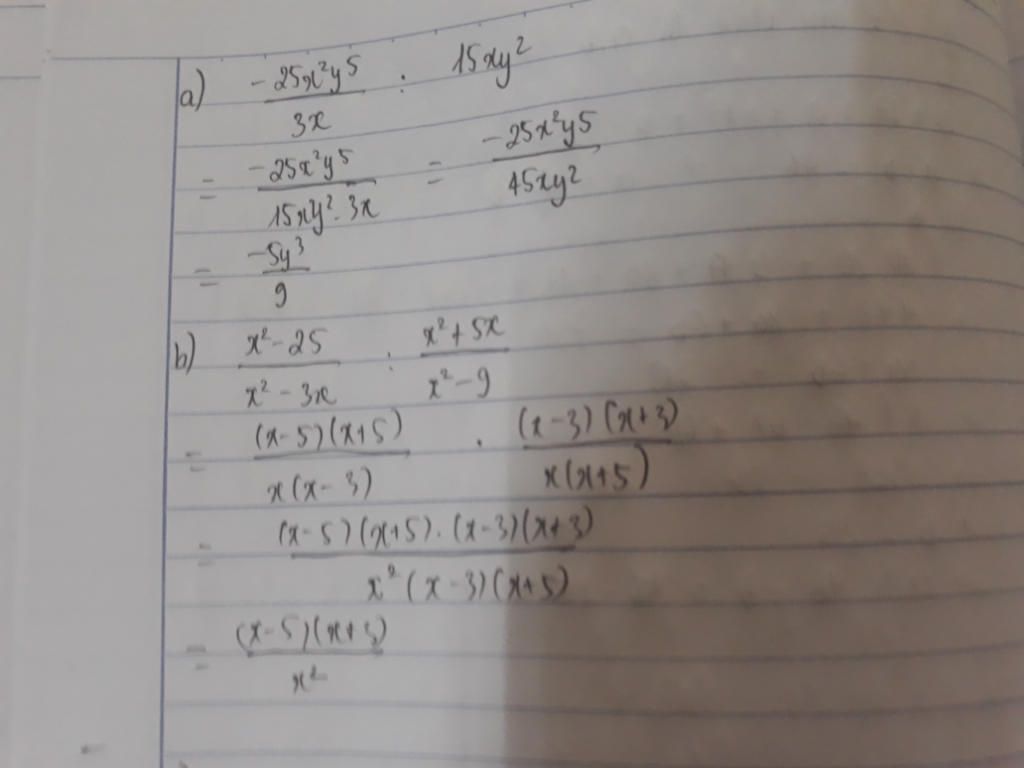 a) -25x²y⁵/3x : 15xy²
= -25x²y⁵/15xy².3x = -25x²y⁵/45xy²
= -5y³/9
b) x²-25/x²-3x : x²+5x/x²-9
= (x-5)(x+5)/x(x-3) . (x-3)(x+3)/x(x+5)
= (x-5)(x+5).(x-3)(x+3)/x²(x-3)(x+5)
= (x-5)(x+3)/x²